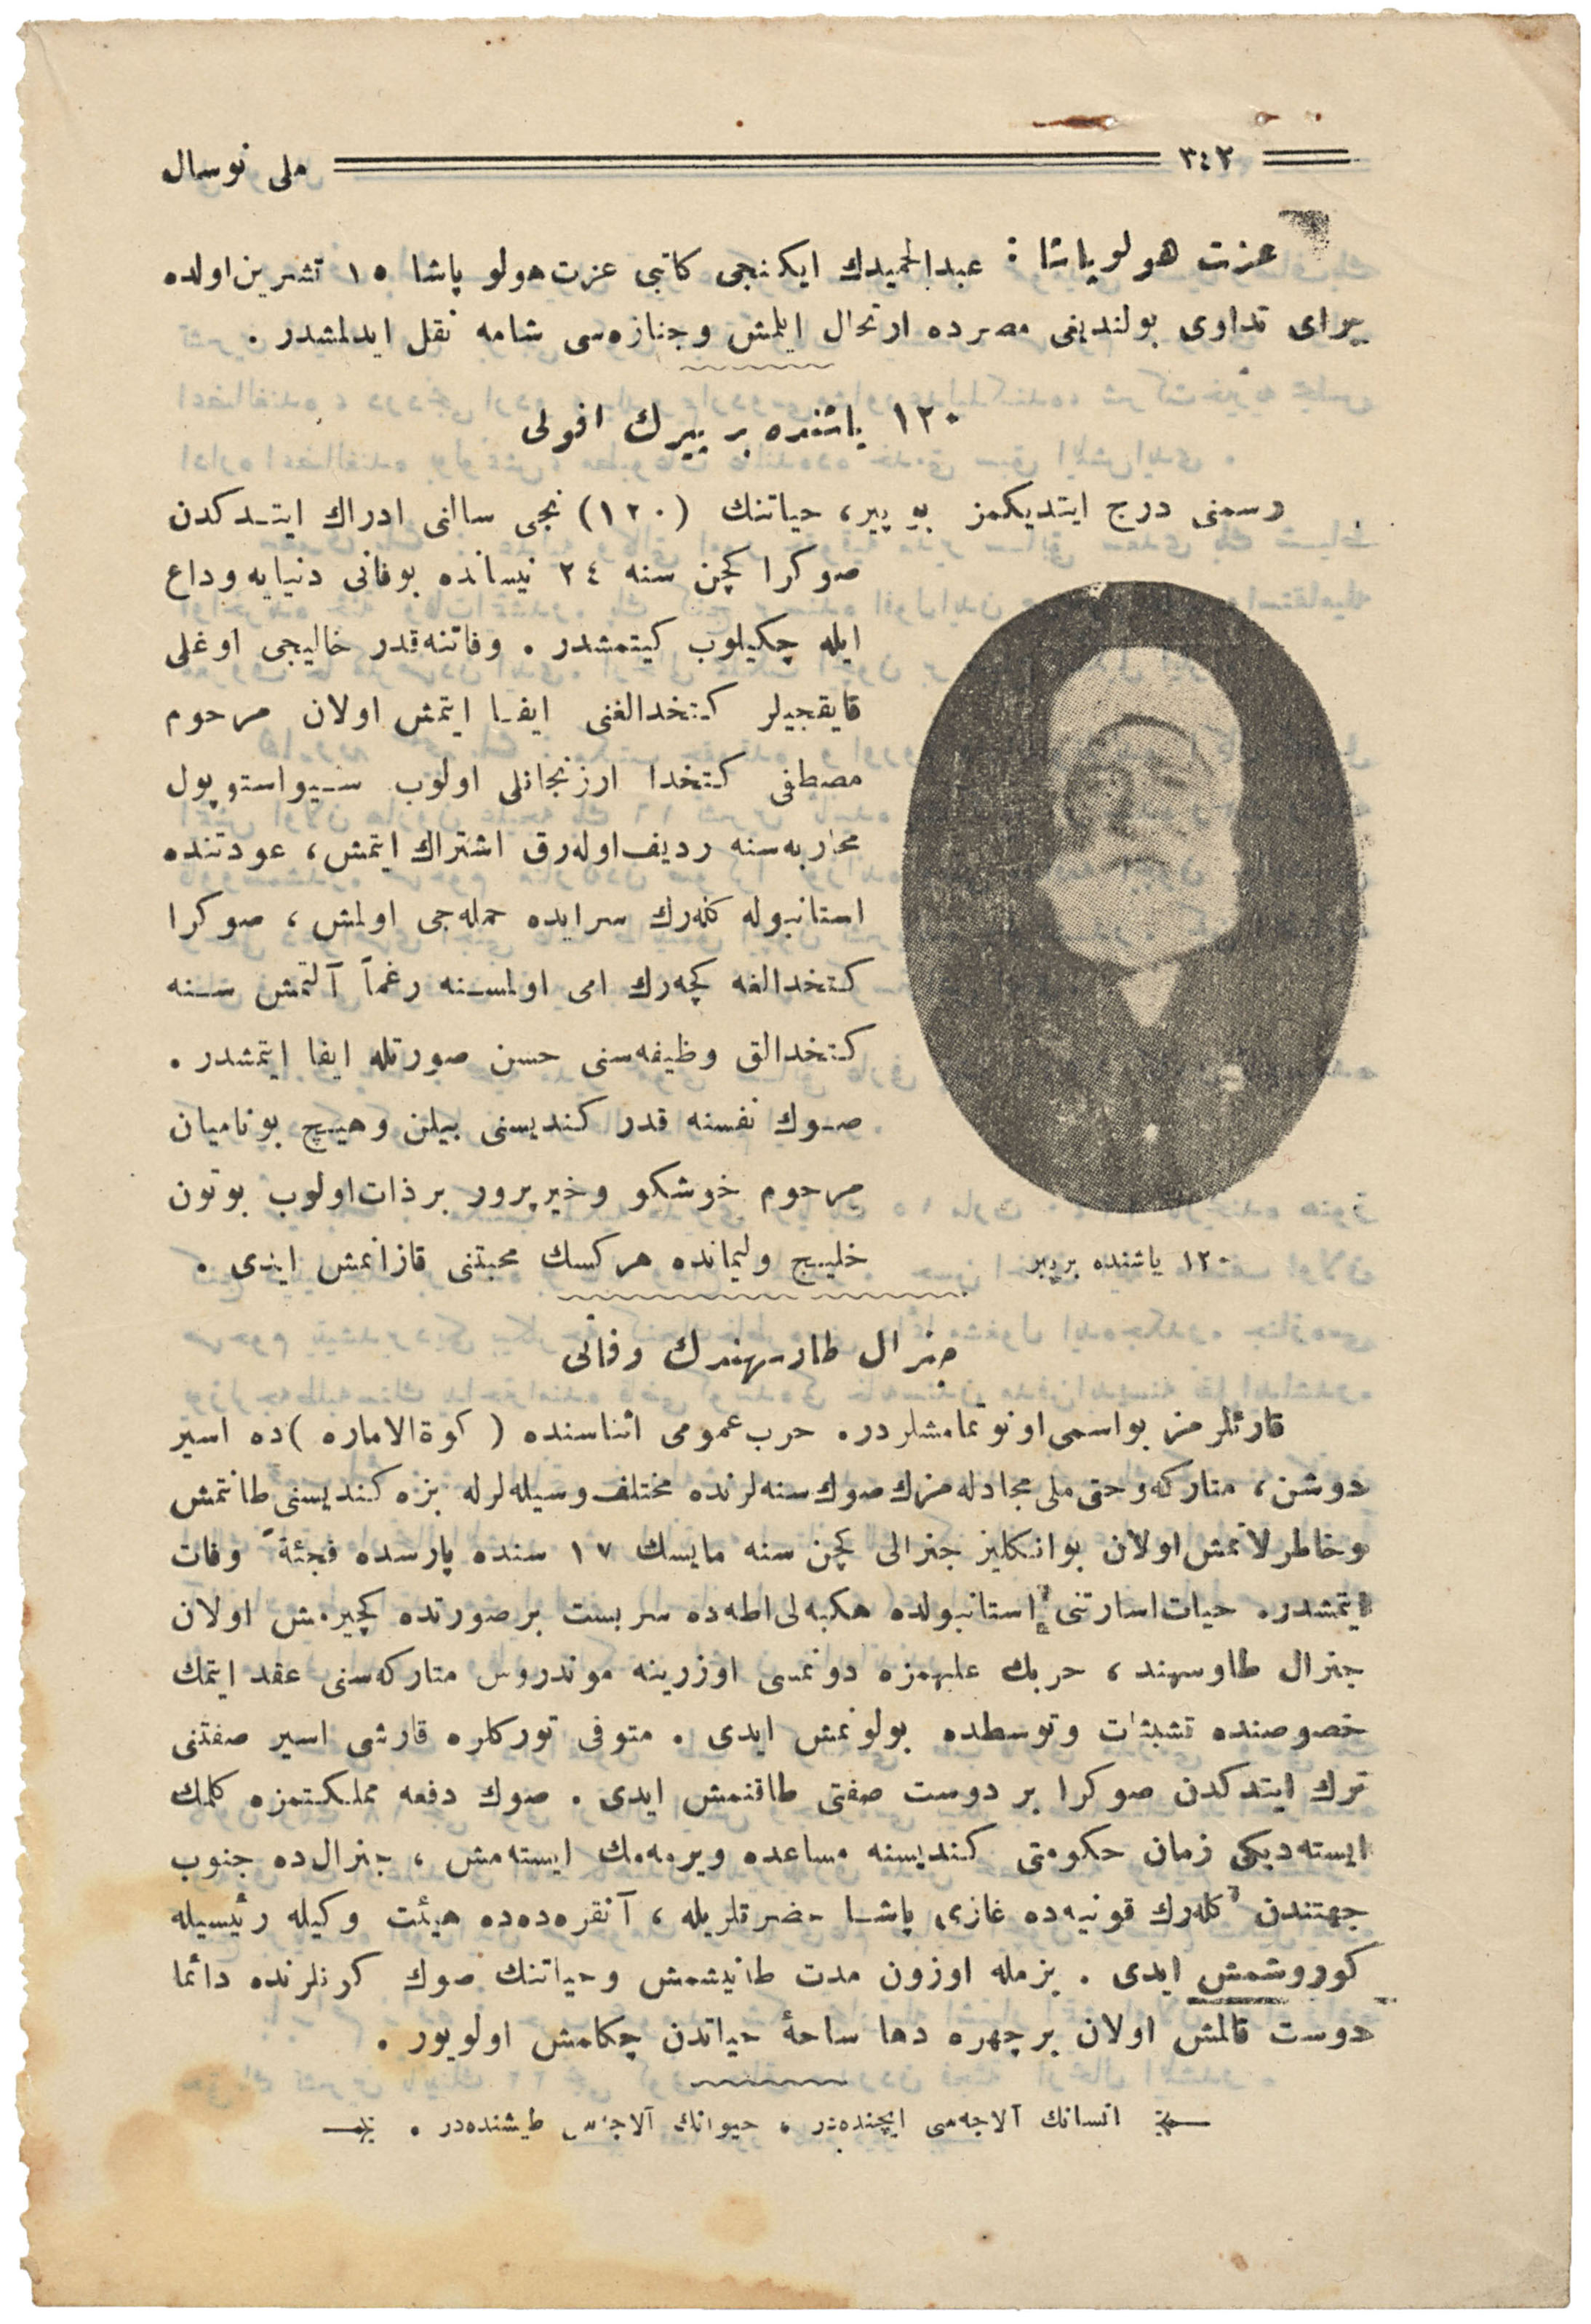 ٣٤٢ ملی نوسال
عزت هولو پاشا : عبدالحمیدك ایكنجی كاتبی عزت هولو پاشا ١٥ تشرین اولده
برای تداوی بولندیغی مصرده ارتحال ایلمش و جنازه‌سی شامه نقل ایدلمشدر .
١٢٠ یاشنده بر پیرك افولی
رسمنی درج ایتدیكمز بو پیر، حیاتنك (١٢٠) نجی سالنی ادراك ایتدكدن
صوكرا كچن سنه ٢٤ نیسانده بوفانی دنیایه وداع
ایله چكیلوب كیتمشدر . وفاتنه‌قدر خالیجی اوغلی
قایقجیلر كتخدالغنی ایفا ایتمش اولان مرحوم
مصطفی كتخدا ارزنجانلی اولوب سیواستوپول
محاربه‌سنه ردیف اوله‌رق اشتراك ایتمش، عودتنده
استانبوله كله‌رك سرایده حمله‌جی اولمش ، صوكرا
كتخدالغه كچه‌رك امی اولمسنه رغماً آلتمش سنه
كتخدالق وظیفه‌سنی حسن صورتله ایفا ایتمشدر .
صوك نفسنه قدر كندیسنی بیلن و هیچ بونامیان
مرحوم خوشكو و خیرپرور بر ذات اولوب بوتون
خلیج و لیمانده هركسك محبتنی قازانمش ایدی .
١٢٠ یاشنده بر پیر
جنرال طاوسهندك وفاتی
قارئلرمز بو اسمی اونوتمامشلردر. حرب عمومی اثناسنده ( كوة‌الاماره )ده اسیر
دوشن، متاركه و حتی ملی مجادله مزك صوك سنه‌لرنده مختلف وسیله‌لرله بزه كندیسنی طانتمش
و خاطرلاتمش اولان بو انكلیز جنرالی كچن سنه مایسك ١٧ سنده پارسده فجئةً وفات
ایتمشدر. حیات اسارتنی استانبولده هكبه‌لی اطه‌ده سربست بر صورتده كچیرمش اولان
جنرال طاوسهند ، حربك علیهمزه دونمسی اوزرینه موندروس متاركه‌سنی عقد ایتمك
خصوصنده تشبثات و توسطده بولونمش ایدی . متوفی توركلره قارشی اسیر صفتنی
ترك ایتدكدن صوكرا بر دوست صفتی طاقنمش ایدی . صوك دفعه مملكتمزه كلمك
ایسته‌دیكی زمان حكومتی كندیسنه مساعده ویرمه‌مك ایسته‌مش ، جنرال‌ده جنوب
جهتندن كله‌رك قونیه‌ده غازی پاشا حضرتلریله ، آنقره‌ده‌ده هیئت وكیله رئیسیله
كوروشمش ایدی . بزمله اوزون مدت طانیشمش و حیاتنك صوك كونلرنده دائما
دوست قالمش اولان بر چهره دها ساحهٔ حیاتدن چكلمش اولویور .
انسانك آلاجه‌سی ایچنده‌در ، حیوانك آلاجه‌سی طیشنده‌در .